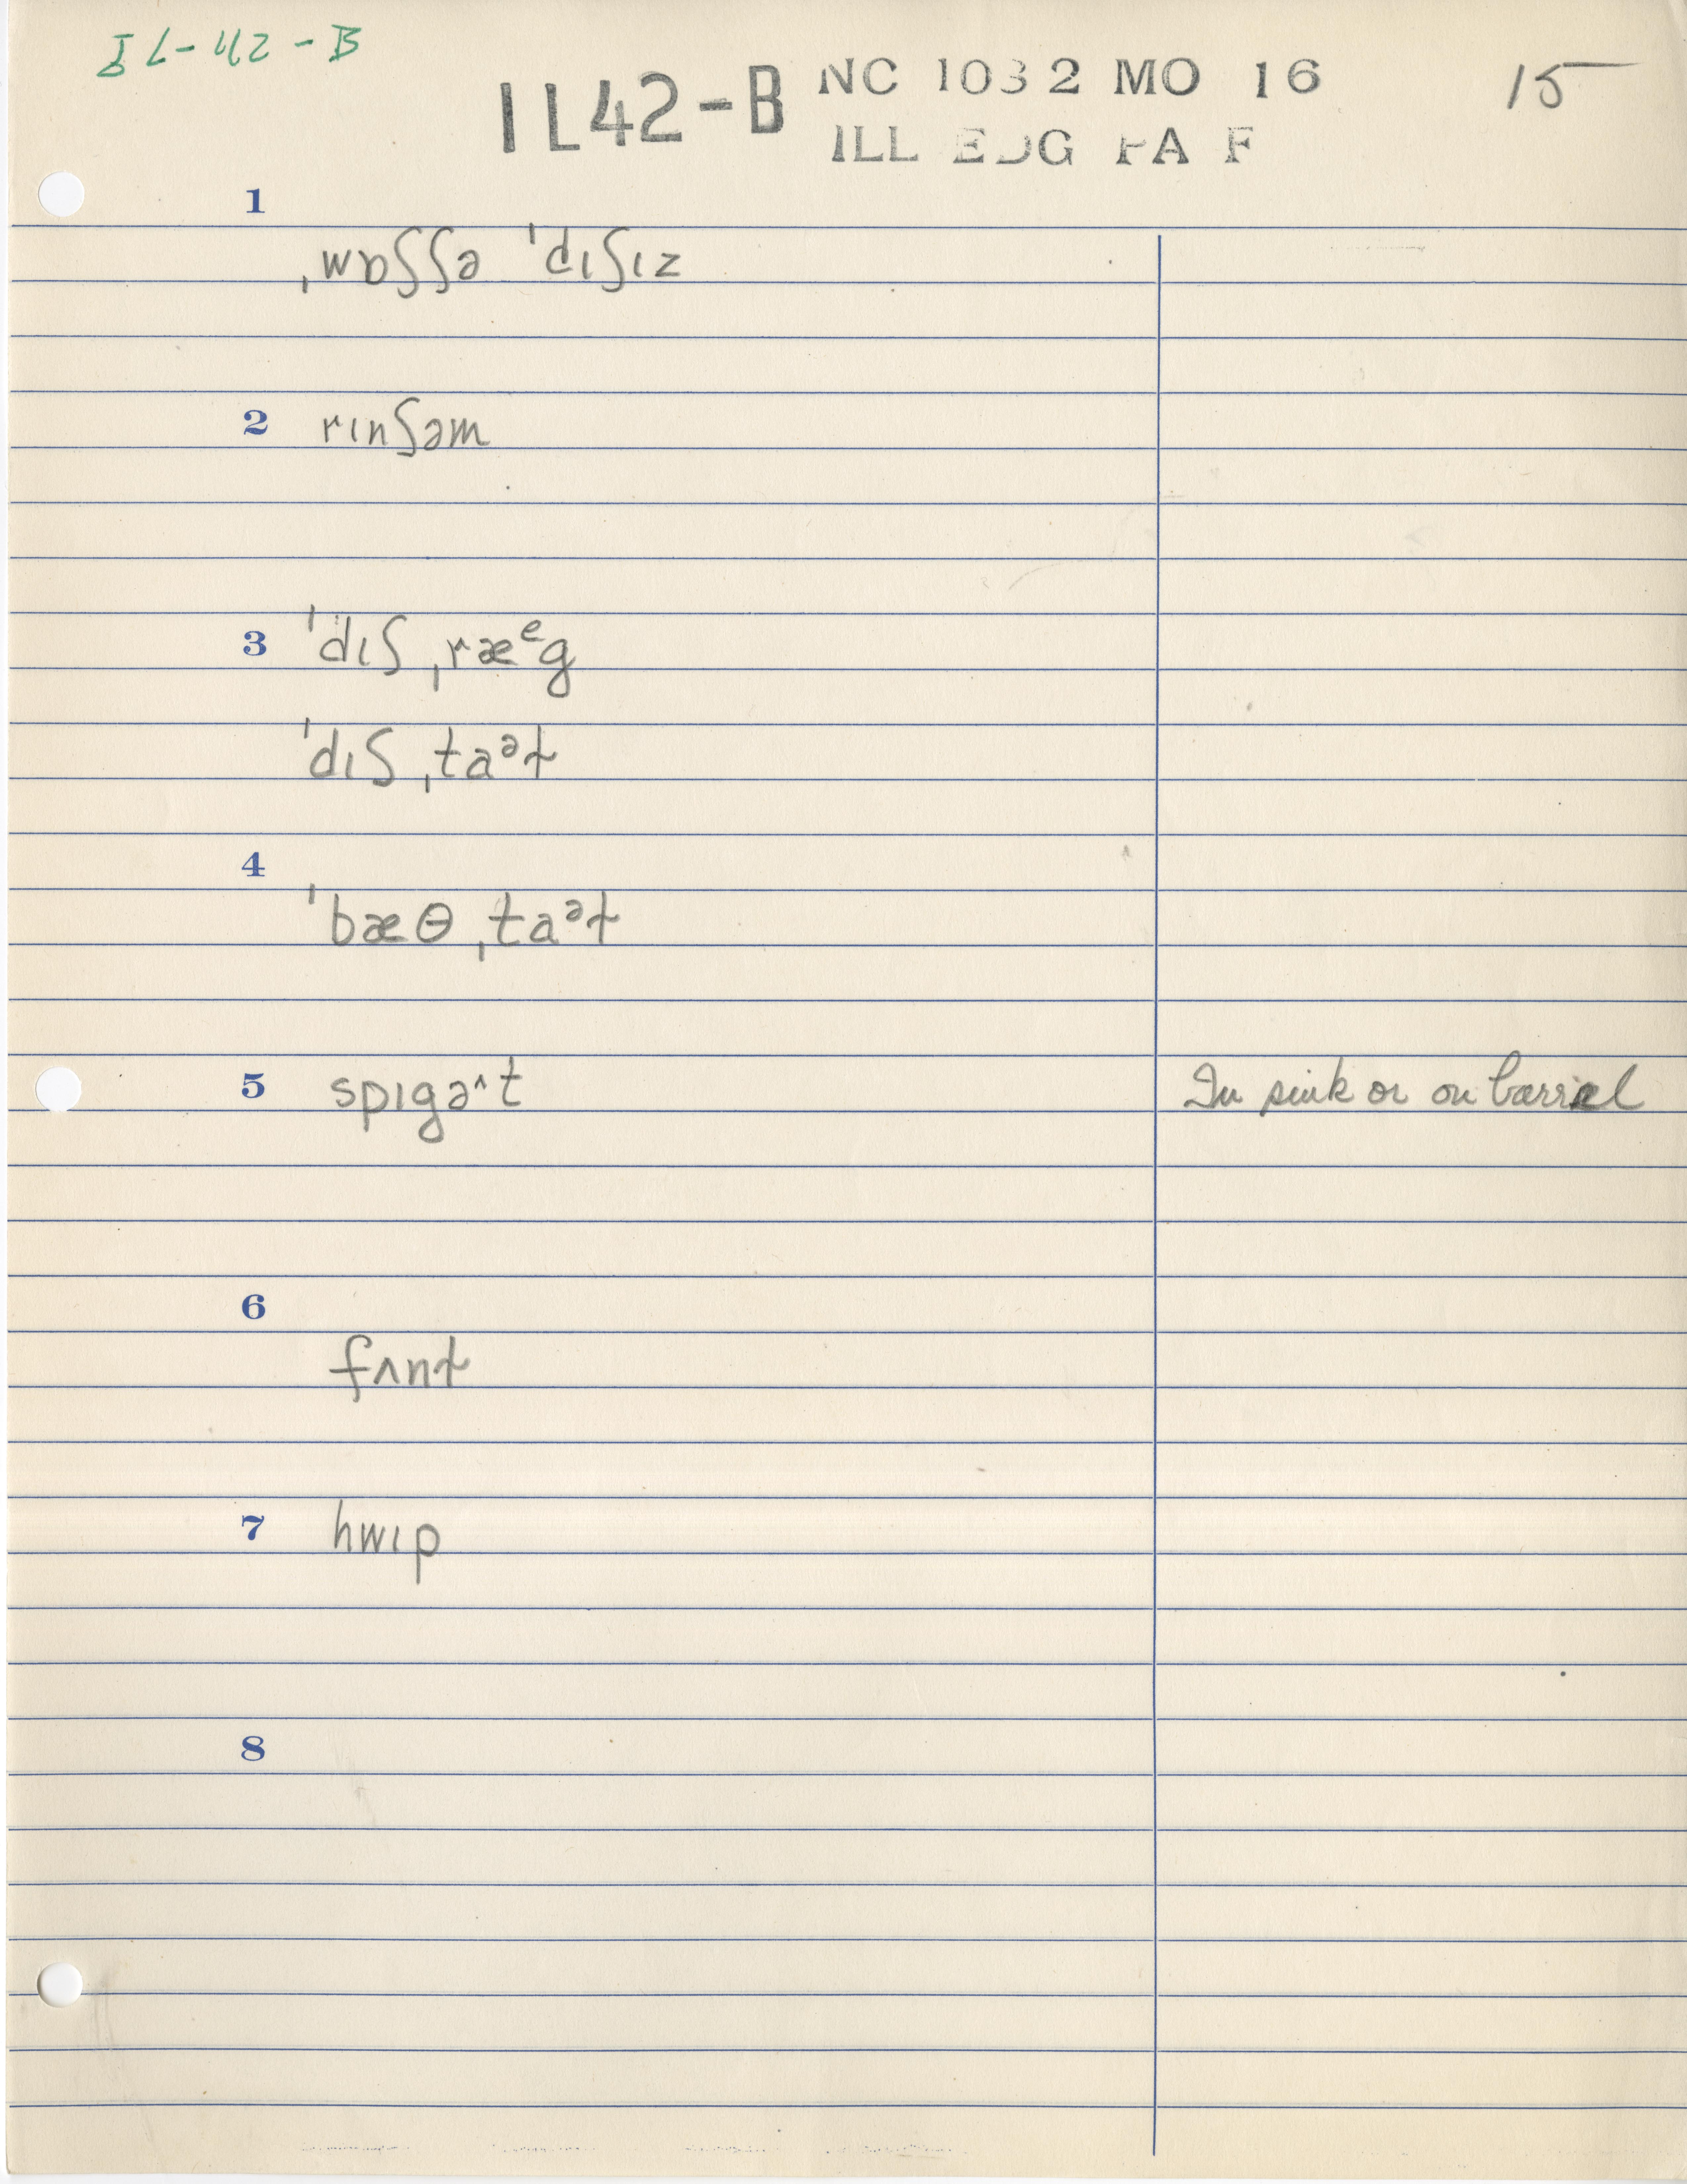 IL-42-B
IL42-B NC 1032 MO 16 15
ILL EDG PA F
1
ˌwɒʃʃə ˈdɪʃɪz
2 rɪnʃəm
3 ˈdɪʃˌræᵉg
ˈdɪʃˌtaᵊɫ
4
ˈbæθˌtaᵊɫ
5 spɪgə^t In sink or on barrel
6
fʌnɫ
7 hwɪp
8